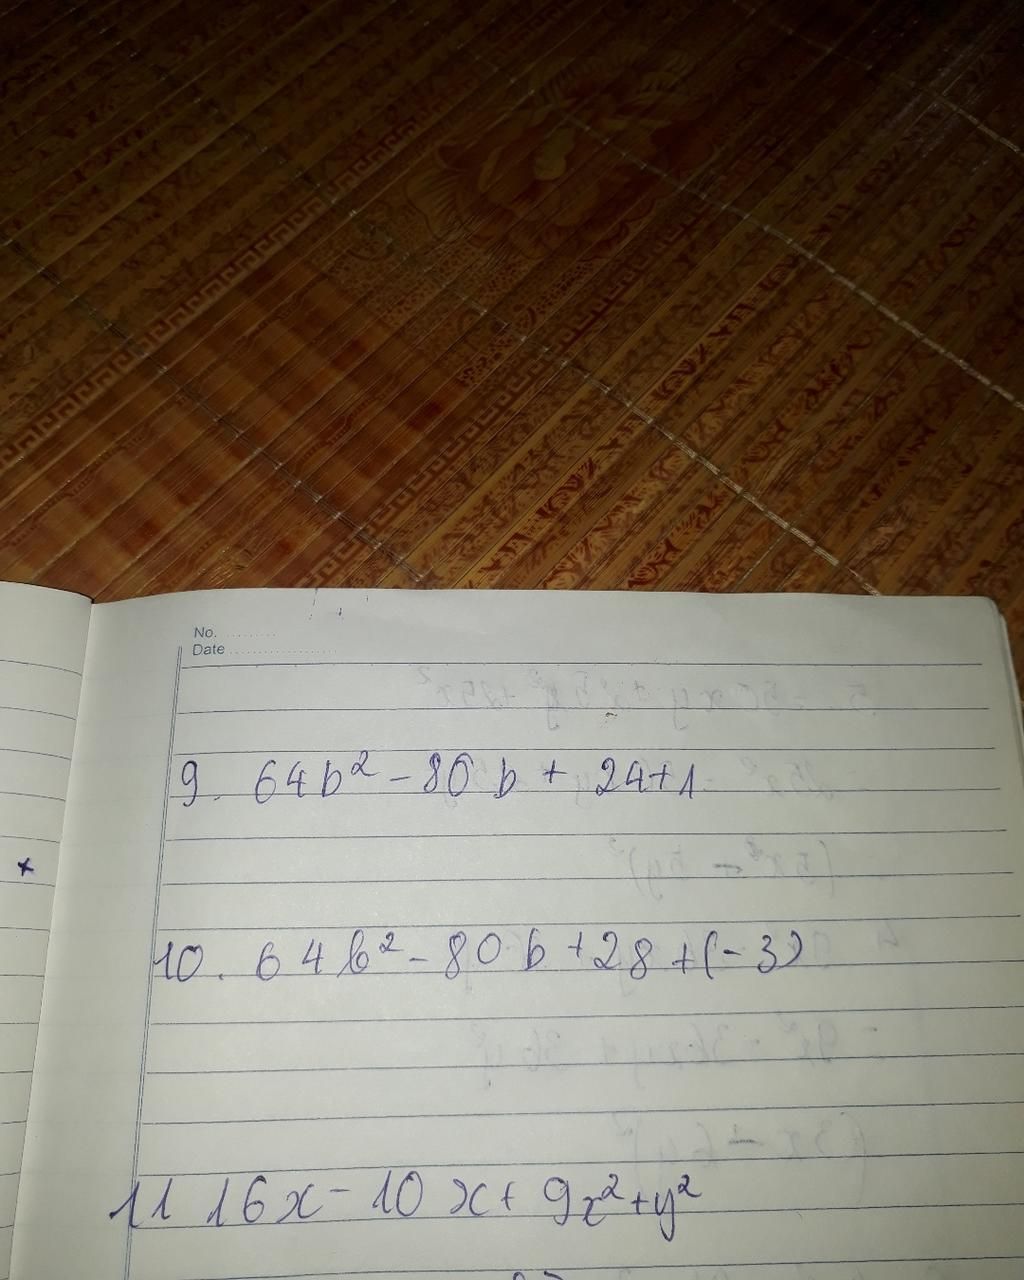 No. ..........
Date ..................
9. 64b² - 80b + 24+1
10. 64b² - 80b + 28 + (-3)
11 16x - 10x + 9z² + y²